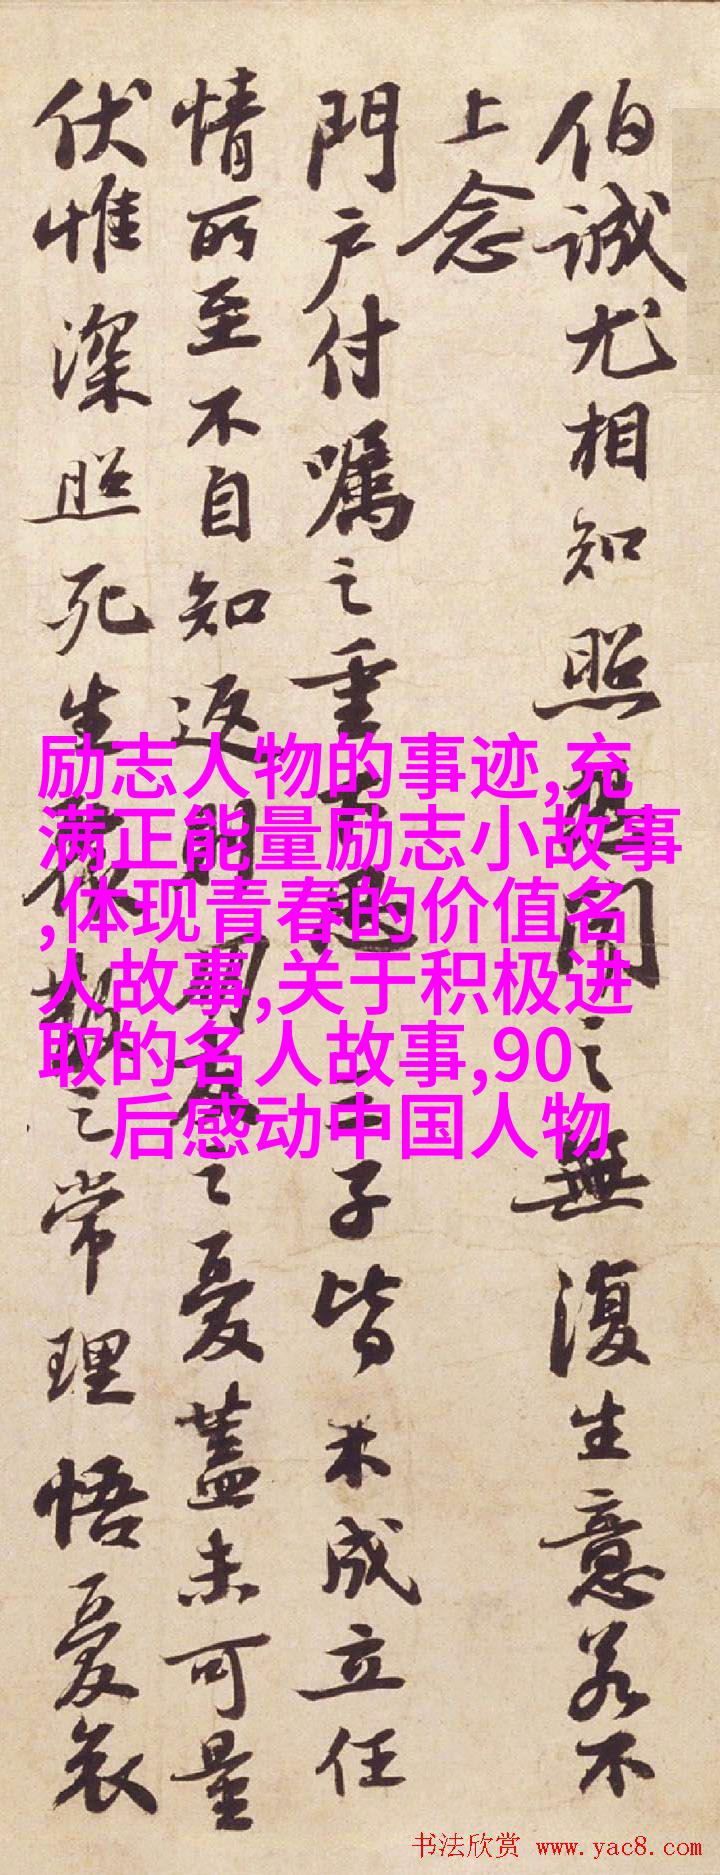 伯誠尤相知照聞之無復生意若不
上念
門戶付囑之重思三子皆未成立任
情所至不自知返朋之憂蓋未可量
伏惟深照死生聚散之常理悟憂哀
励志人物的事迹,充
满正能量励志小故事
,体现青春的价值名
人故事,关于积极进
取的名人故事,90
后感动中国人物
书法欣赏 www.yac8.com